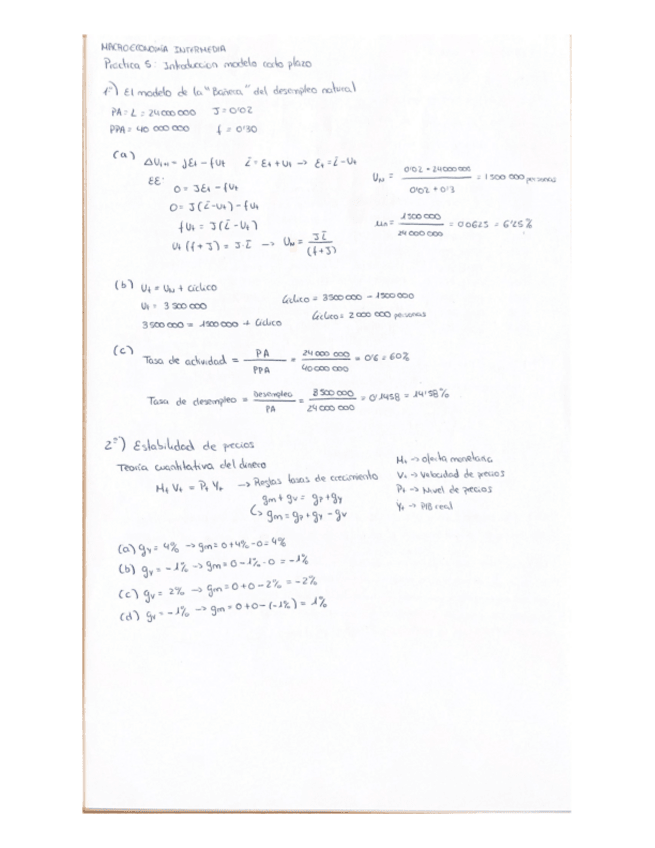 MACROECONOMÍA INTERMEDIA
Práctica 5: Introduccion modelo corto plazo
1º) El modelo de la "Bañera" del desempleo natural
PA = L = 24 000 000 J = 0'02
PPA = 40 000 000 f = 0'30
(a) ΔUt+1 = JEt - fUt L̄ = Et + Ut → Et = L̄ - Ut
EE:
0 = JEt - fUt
0 = J(L̄ - Ut) - fUt
fUt = J(L̄ - Ut)
Ut (f + J) = J · L̄ → UN = JL̄ / (f + J)
UN = 0'02 · 24 000 000 / 0'02 + 0'3 = 1 500 000 personas
un = 1 500 000 / 24 000 000 = 0'0625 = 6'25%
(b) Ut = UN + cíclico
Ut = 3 500 000
3 500 000 = 1 500 000 + Cíclico
Cíclico = 3 500 000 - 1 500 000
Cíclico = 2 000 000 personas
(c) Tasa de actividad = PA / PPA = 24 000 000 / 40 000 000 = 0'6 = 60%
Tasa de desempleo = Desempleo / PA = 3 500 000 / 24 000 000 = 0'1458 = 14'58%
2º) Estabilidad de precios
Teoría cuantitativa del dinero
Mt Vt = Pt Yt → Reglas tasas de crecimiento
gm + gv = gp + gy
↳ gm = gp + gy - gv
Mt → oferta monetaria
Vt → Velocidad de precios
Pt → Nivel de precios
Yt → PIB real
(a) gy = 4% → gm = 0 + 4% - 0 = 4%
(b) gy = -1% → gm = 0 - 1% - 0 = -1%
(c) gv = 2% → gm = 0 + 0 - 2% = -2%
(d) gv = -1% → gm = 0 + 0 - (-1%) = 1%